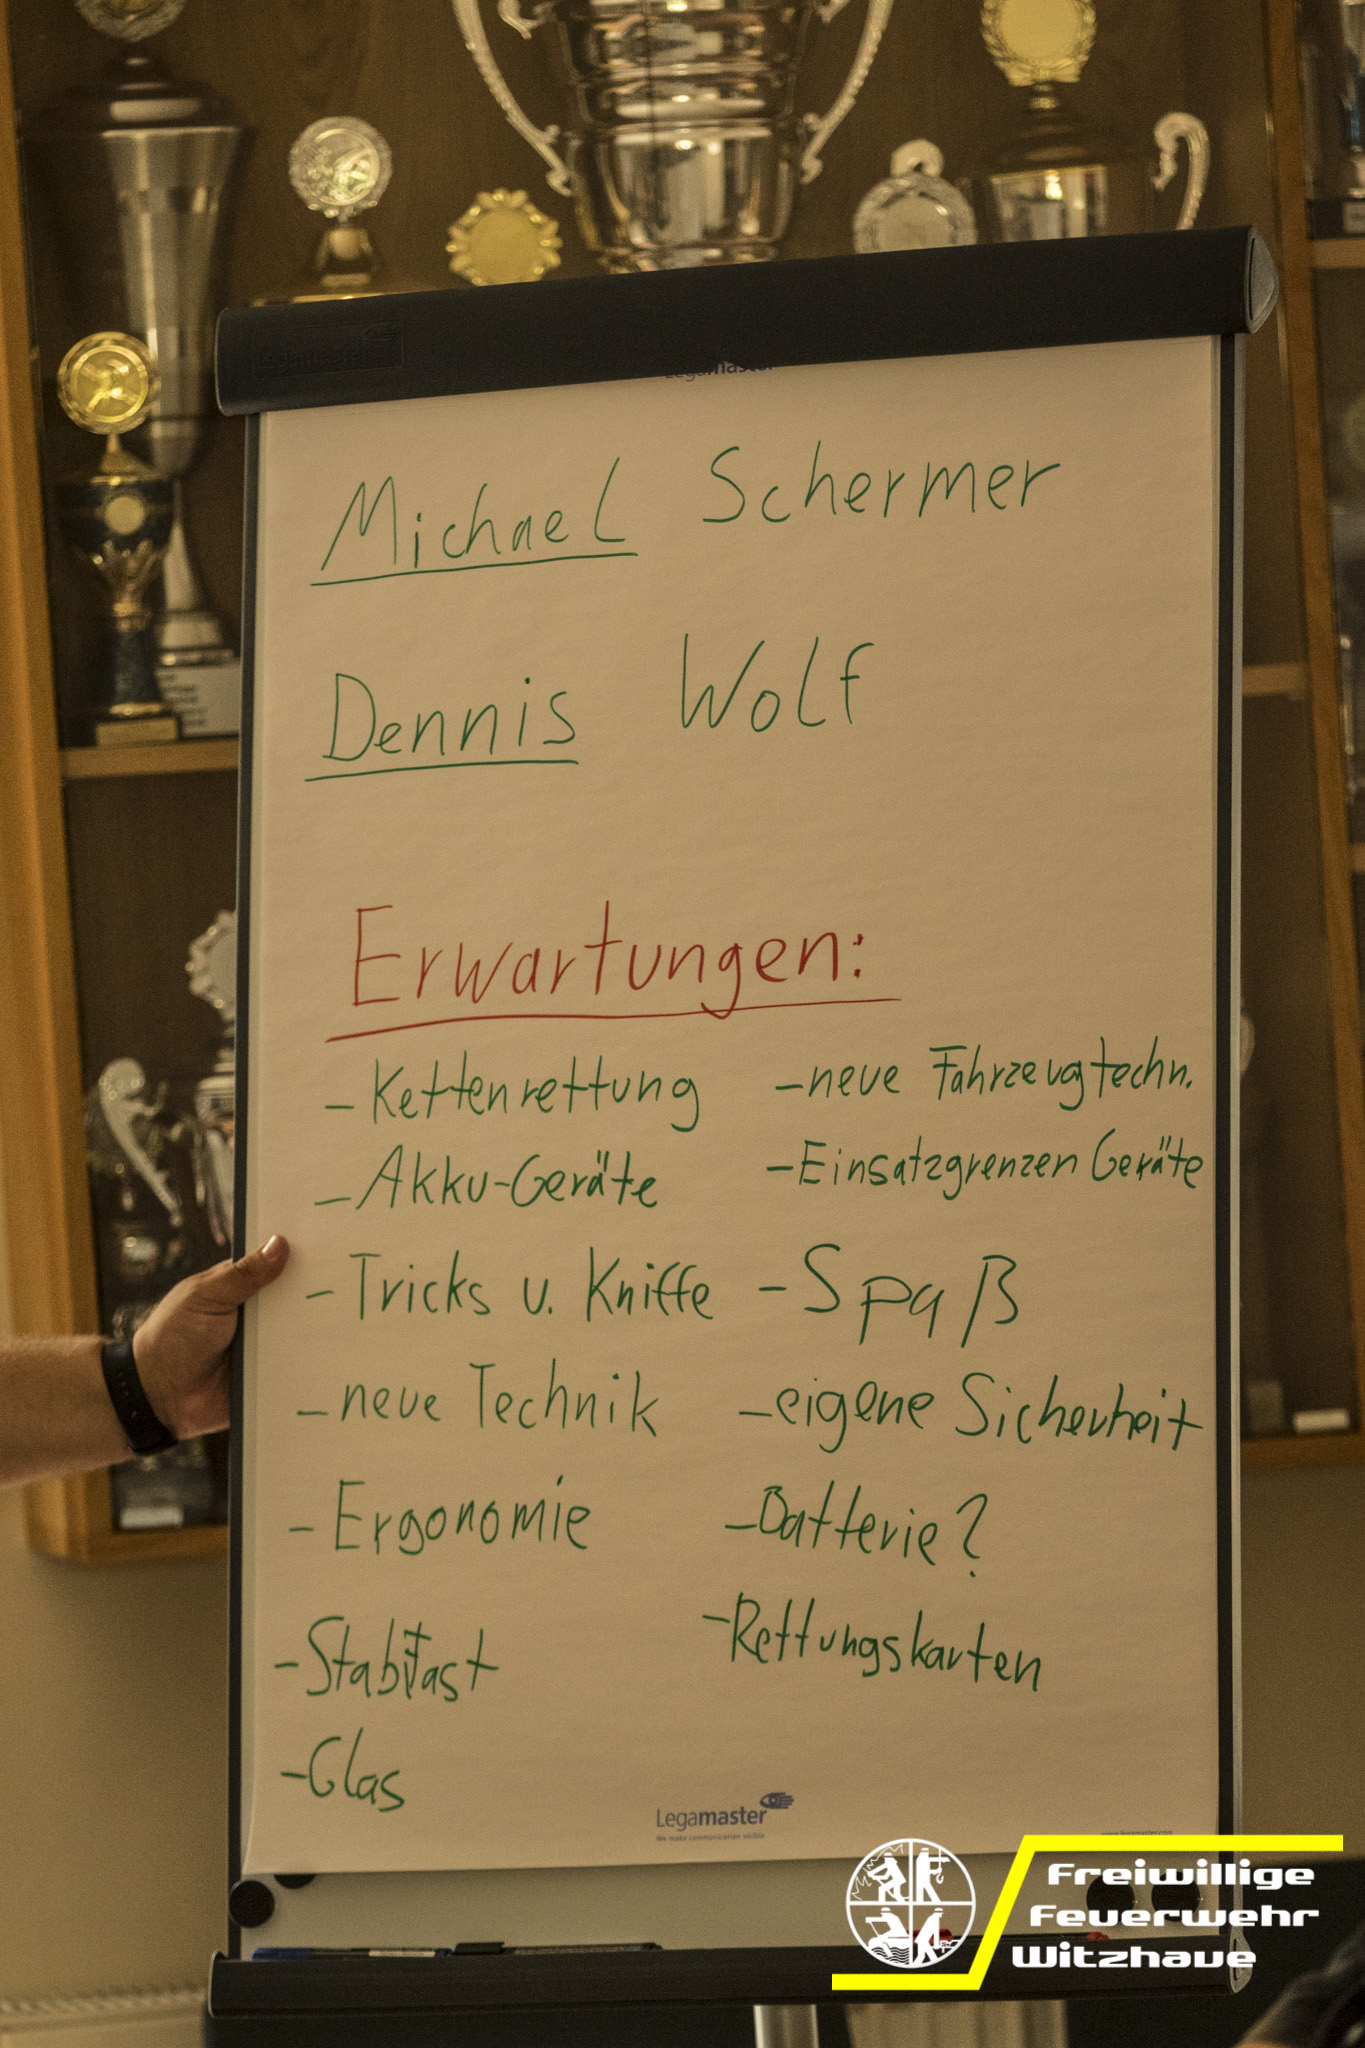 Legamaster
Michael Schermer
Dennis Wolf
Erwartungen:
- Kettenrettung
- Akku-Geräte
- Tricks u. Kniffe
- neue Technik
- Ergonomie
- Stabfast
- Glas
- neue Fahrzeugtechn.
- Einsatzgrenzen Geräte
- Spaß
- eigene Sicherheit
- Batterie?
- Rettungskarten
Legamaster
We make communication visible
www.legamaster.com
Freiwillige
Feuerwehr
Witzhave